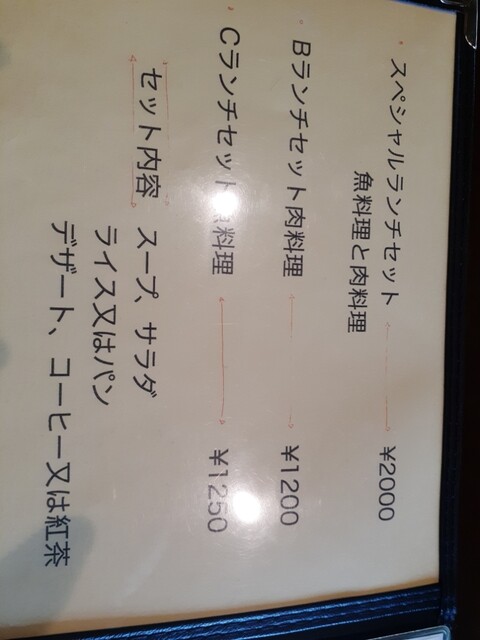 スペシャルランチセット ¥2000
魚料理と肉料理
Bランチセット肉料理 ¥1200
Cランチセット魚料理 ¥1250
セット内容 スープ、サラダ
ライス又はパン
デザート、コーヒー又は紅茶